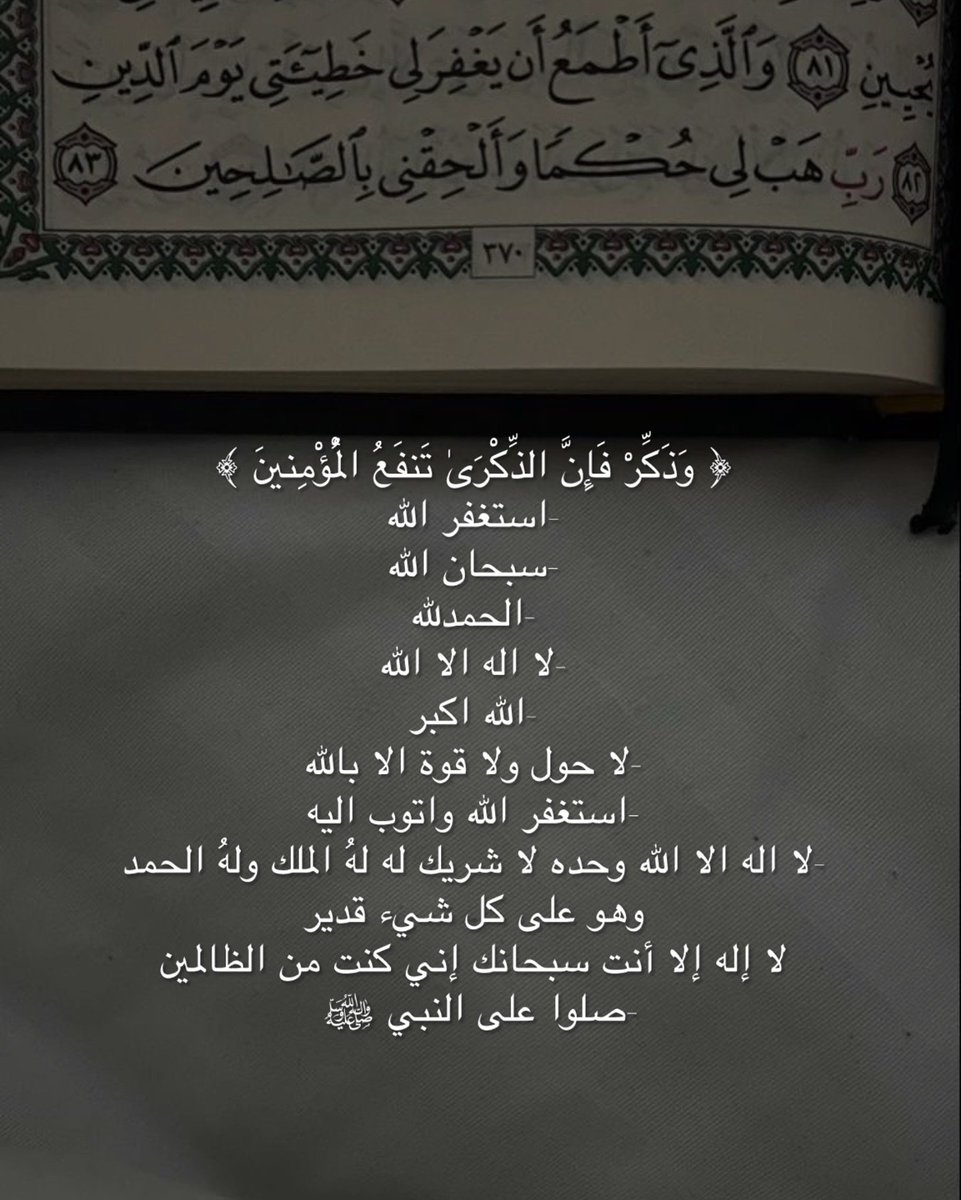 يُحْيِينِ ﴿٨١﴾ وَٱلَّذِىٓ أَطْمَعُ أَن يَغْفِرَ لِى خَطِيٓـَٔتِى يَوْمَ ٱلدِّينِ
﴿٨٢﴾ رَبِّ هَبْ لِى حُكْمًا وَأَلْحِقْنِى بِٱلصَّـٰلِحِينَ ﴿٨٣﴾
٣٧٠
﴿ وَذَكِّرْ فَإِنَّ الذِّكْرَىٰ تَنفَعُ الْمُؤْمِنِينَ ﴾
-استغفر الله
-سبحان الله
-الحمدلله
-لا اله الا الله
-الله اكبر
-لا حول ولا قوة الا بالله
-استغفر الله واتوب اليه
-لا اله الا الله وحده لا شريك له لهُ الملك ولهُ الحمد
وهو على كل شيء قدير
لا إله إلا أنت سبحانك إني كنت من الظالمين
-صلوا على النبي ﷺ